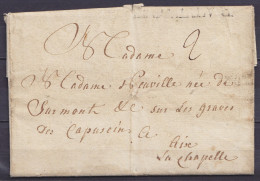 Madame 2
Madame Henville née de
Surmont &c sur les graves
des Capucins &c
Aixe
La Chapelle